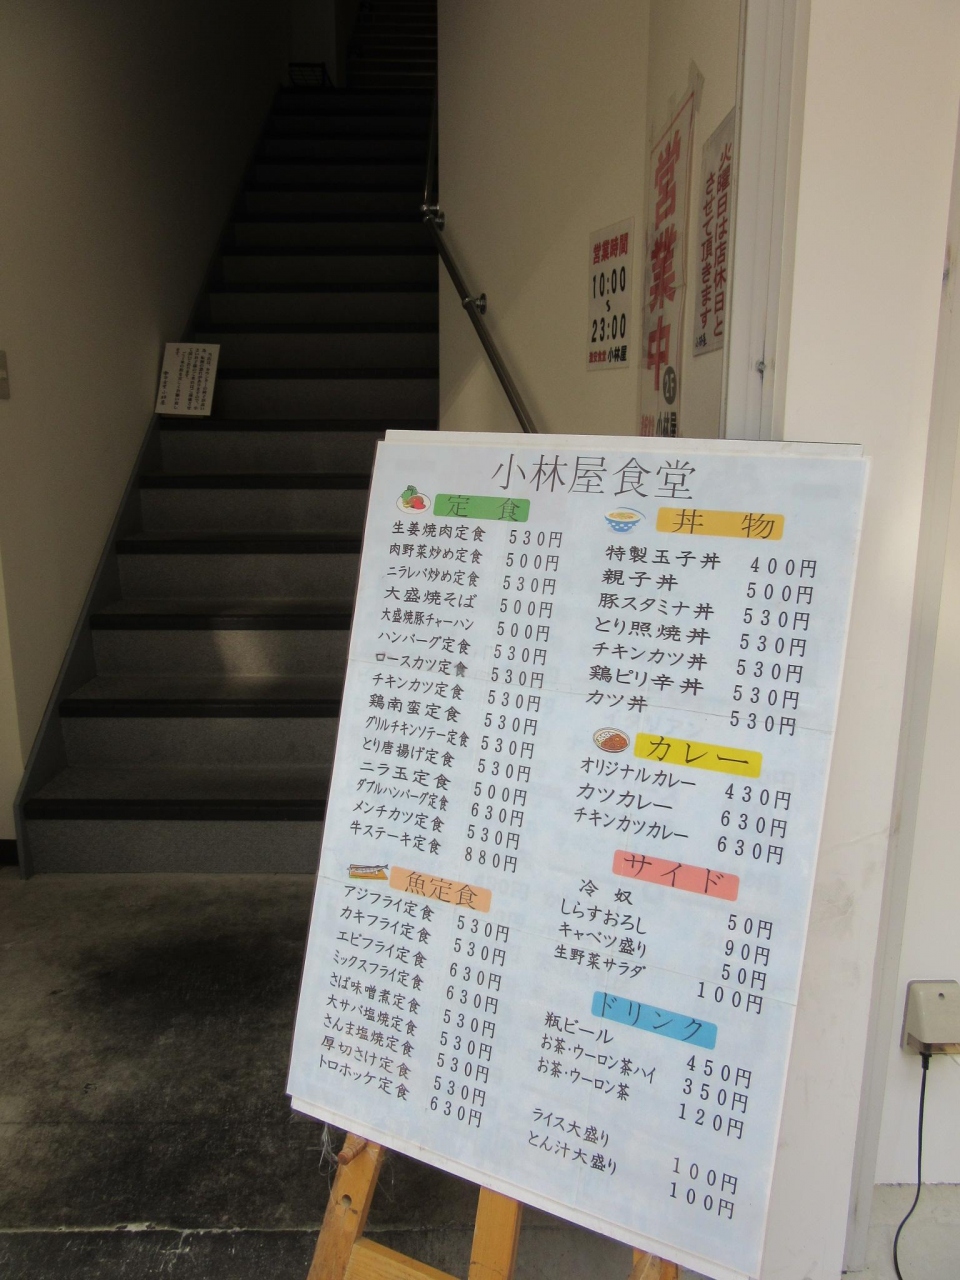 営業時間
10:00
〜
23:00
小林屋
営業中
2F
小林屋
火曜日は店休日と
させて頂きます
小林屋食堂
定食
生姜焼肉定食 530円
肉野菜炒め定食 500円
ニラレバ炒め定食 530円
大盛焼そば 500円
大盛焼豚チャーハン 500円
ハンバーグ定食 530円
ロースカツ定食 530円
チキンカツ定食 530円
鶏南蛮定食 530円
グリルチキンソテー定食 530円
とり唐揚げ定食 530円
ニラ玉定食 500円
ダブルハンバーグ定食 630円
メンチカツ定食 530円
牛ステーキ定食 880円
魚定食
アジフライ定食 530円
カキフライ定食 530円
エビフライ定食 630円
ミックスフライ定食 630円
さば味噌煮定食 530円
大サバ塩焼定食 530円
さんま塩焼定食 530円
厚切さけ定食 530円
トロホッケ定食 630円
丼物
特製玉子丼 400円
親子丼 500円
豚スタミナ丼 530円
とり照焼丼 530円
チキンカツ丼 530円
鶏ピリ辛丼 530円
カツ丼 530円
カレー
オリジナルカレー 430円
カツカレー 630円
チキンカツカレー 630円
サイド
冷奴 50円
しらすおろし 90円
キャベツ盛り 50円
生野菜サラダ 100円
ドリンク
瓶ビール 450円
お茶・ウーロン茶ハイ 350円
お茶・ウーロン茶 120円
ライス大盛り 100円
とん汁大盛り 100円